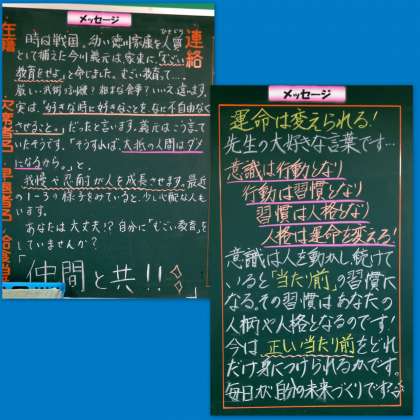 メッセージ
連絡
時は戦国。幼い徳川家康を人質
ひとじち
として捕えた今川義元は、家来に、「むごい
教育をせよ」と命じました。むごい教育って…
厳しい武術の訓練？粗末な食事？いえ違います。
実は、「好きな時に好きなことを、なに不自由なく
させること。」だったと言います。義元はこう言っ
ていたそうです。「そうすれば、大抵の人間はダメ
になるから。」と。
我慢や忍耐が人を成長させます。最近
の1-3の様子をみていると、少し心配な人も
います。
あなたは大丈夫！？自分に「むごい教育」を
していませんか？
「仲間と共!!
欠席者名
早退者名
給食当
メッセージ
運命は変えられる！
先生の大好きな言葉です…
意識は行動となり
行動は習慣となり
習慣は人格となり
人格は運命を変える！
意識は人を動かし、続けて
いると「当たり前」の習慣に
なる。その習慣はあなたの
人柄や人格となるのです！
今は正しい当たり前をどれ
だけ身につけられるかです。
毎日が自分の未来づくりです？